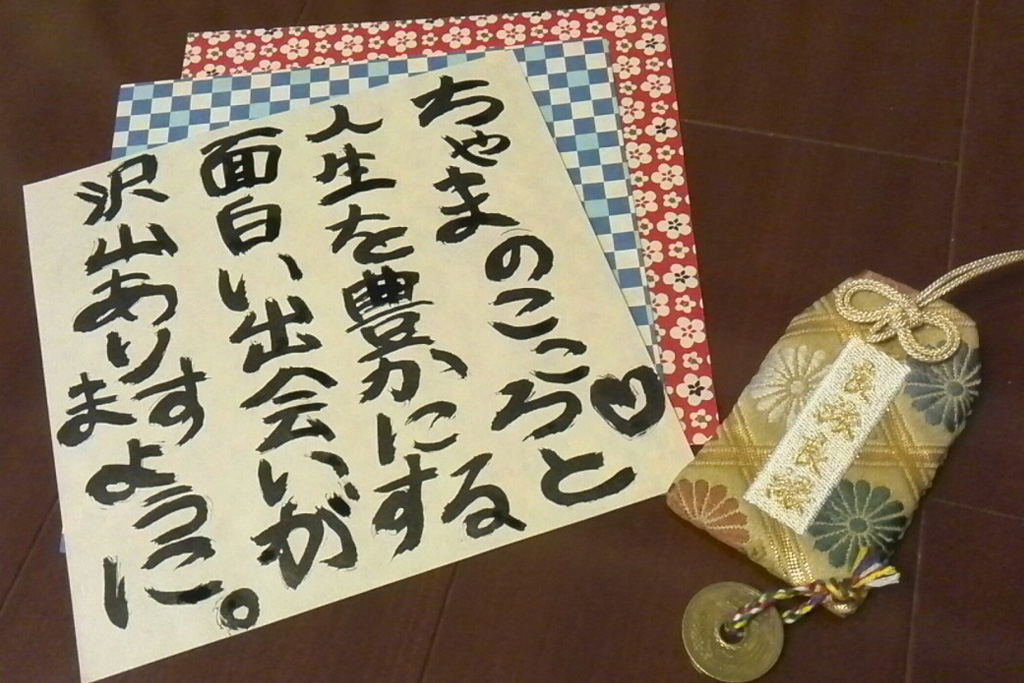 ちゃまのこころと♥
人生を豊かにする
面白い出会いが
沢山ありますように。
良縁良縁